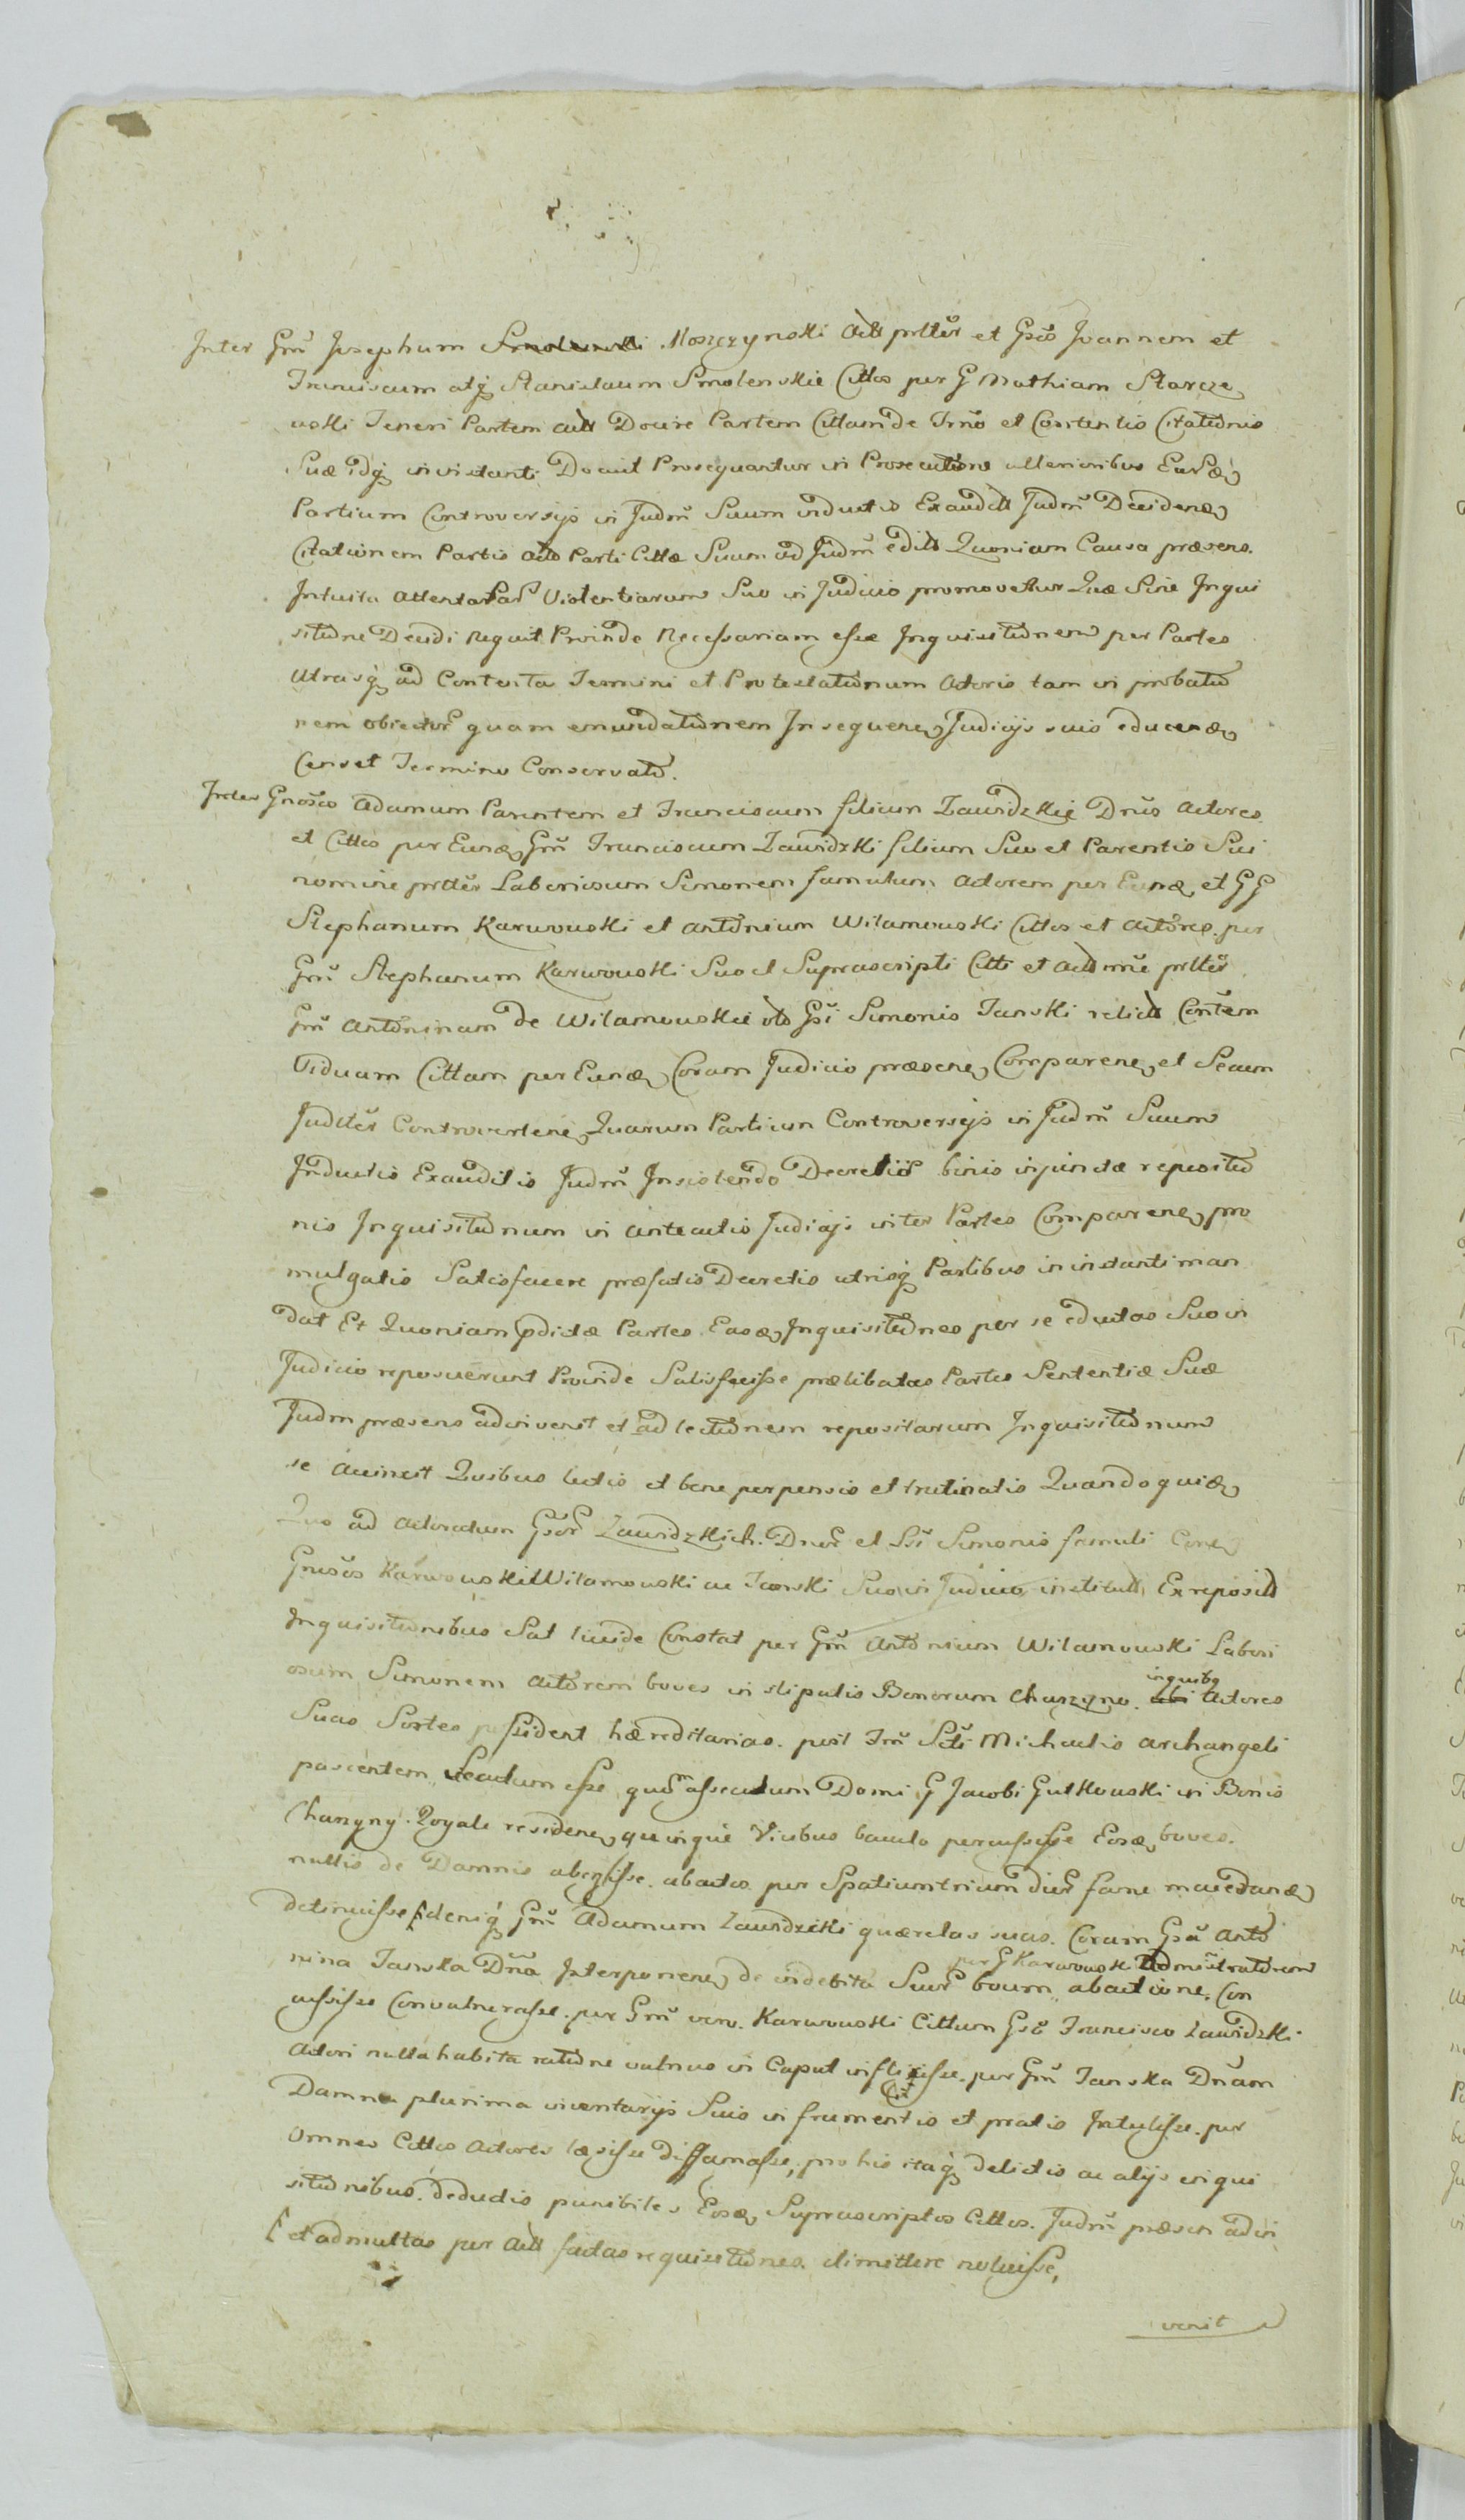 Inter Grũ Josephum Smolenski Moszczynski Actt prlter et Gsõs Joannem et
Franciscum atq Stanislaum Smolenskie Cittos per G Mathiam Starcze
wski Teneri Partem Actt Docere Partem Cittam de Trño et Contentis Citatiõnis
Suæ idq in instanti Docuit Prosequantur in Prosecutione ulterioribus Earundē
Partium Controversijs in Judm Suum inductis Exauditt Judm Decidendē
Citationem Partis Actt Parti Cittæ Suum ad Judm edidt Quoniam Causa præsens.
Intuitu attentatar Violentiarum Suo in Judicio promovetur Quæ Sine Inqui
sitõne Decidi nequit Proinde Necessariam esse Inquisitionem per Partes
Utrasq ad Contenta Termini et Protestationum Actoris tam in probatio
nem obiector quam emundationem In sequen Judicijs suis educend
Censet Termino Conservato.
Inter Gnosos Adamum Parentem et Franciscum filium Zawidzkie Dnos Actores
et Cittos per Eund Grũ Franciscum Zawidzki filium Suo et Parentis Sui
nomine prlter Laboriosum Simonem famulum Actorem per Eund et GG
Stephanum Karwowski et Antonium Wilamowski Cittos et Actores. per
Grũ Stephanum Karwowski Suo et Suprascripti Citti et Actt nne prltẽr
Grũ Antoninam de Wilamowskie olt Gsi Simonis Janski relictt Contem
Viduam Cittam per Eund Coram Judicio præsen Comparen et Secum
Judtẽr Controverten Quarum Partium Controversijs in Judm Suum
Inductis Exauditis Judm Insistendo Decretis binis injunctæ repositio
nis Inquisitionum in anteactis Judicijs inter Partes Comparen pro
mulgatis Satisfacere præfatis Decretis utrisq Partibus in instanti man
dat Et Quoniam pdictæ Partes Easd Inquisitiones per se eductas Suo in
Judicio reposuerunt Proinde Satisfecisse prælibatas Partes Sententiæ Suæ
Judm præsens adinvenit et ad lectionem repositarum Inquisitionum
se accinxit Quibus lectis et bene perpensis et trutinatis Quandoquid
Quo ad Actoratum Gsor Zawidzkich. Dnor et Lsi Simonis famuli Con
Gnosos Karwowski Wilamowski ac Janski Suo in Judicio institutt Ex repositt
Inquisitionibus Sat liuide Constat per Grũ Antonium Wilamowski Labori
osum Simonem Actorem boves in stipulis Bonorum Chrzczyno. ubi inquibg Actores
Suas Sortes possident hæreditarias. post Frũ Scti Michaelis Archangeli
pascentem esse quo assecutum Domi G Jacobi Gutkowski in Bonis
residen quinque Vicibus baculo percussisse Eosd boves.
nullis de Damnis abegisse. abactos per Spatium trium dier fame macerand
detinuisse [denig Grũ Adamum Zawidzki quærelas suas. Coram Gsã Anto
nina Janska Dnã Interponen de indebita Suor boum abactione. per G Karwowski Administratorem Con
cussisse Convulnerasse. per Grũ vero. Karwowski Cittum Gsõ Francisco Zawidzki
Actori nulla habita ratione vulnus in Caput inflixisse. per Grũ Janska Dnãm
Damna plurima inventarijs Suis in frumentis et pratis Intulisse. per
Omnes Cittos Actores læsisse Diffamasse, pro his itaq delictis ac alijs inqui
sitionibus. deductis punibiles Eosd Suprascriptos Cittos. Judm præsen adin
[et ad multas per Actt factas requisitiones. dimittere noluisse,
venit